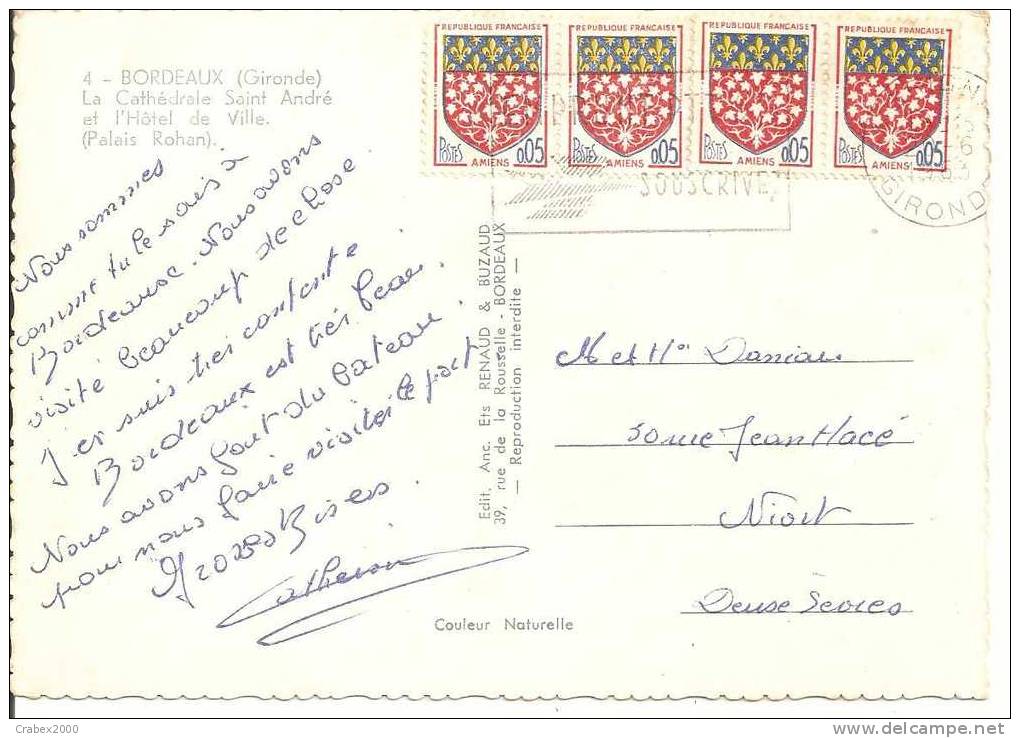 4 - BORDEAUX (Gironde)
La Cathédrale Saint André
et l'Hôtel de Ville.
(Palais Rohan).
Nous sommes
comme tu le sais à
Bordeause. Nous avons
visité beaucoup de chose
J'en suis très contente
Bordeaux est très beau.
Nous avons fait du bateau
pour nous faire visiter le port
Grosses Bises
Catherine
Edit. Anc. Ets RENAUD & BUZAUD
39, rue de la Rousselle - BORDEAUX
— Reproduction interdite —
Couleur Naturelle
REPUBLIQUE FRANÇAISE
POSTES
AMIENS
0,05
REPUBLIQUE FRANÇAISE
POSTES
AMIENS
0,05
REPUBLIQUE FRANÇAISE
POSTES
AMIENS
0,05
REPUBLIQUE FRANÇAISE
POSTES
AMIENS
0,05
SOUSCRIVEZ
GIRONDE
M et Me
30 rue Jean Macé
Niort
Deuse Sevres
Crabex2000
www.delcampe.net